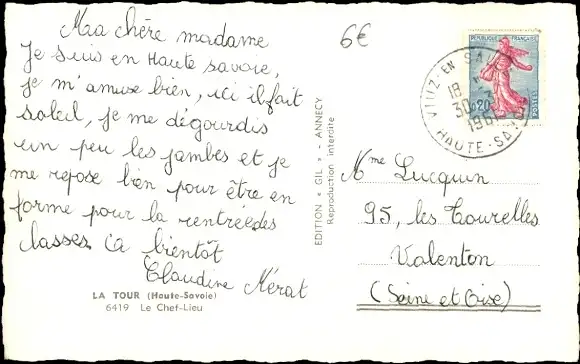 Ma chère madame
Je suis en Haute savoie,
je m'amuse bien, ici il fait
soleil, je me dégourdis
un peu les jambes et je
me repose bien pour être en
forme pour la rentrée des
classes. à bientôt
Claudine Mérat
LA TOUR (Haute-Savoie)
6419 Le Chef-Lieu
EDITION « GIL » - ANNECY
Reproduction interdite
6€
REPUBLIQUE FRANÇAISE
0,20
POSTES
VIUZ-EN-SA
18
30
196
HAUTE-SA
Mme Lucquin
95, les Tourelles
Valenton
(Seine et Oise)